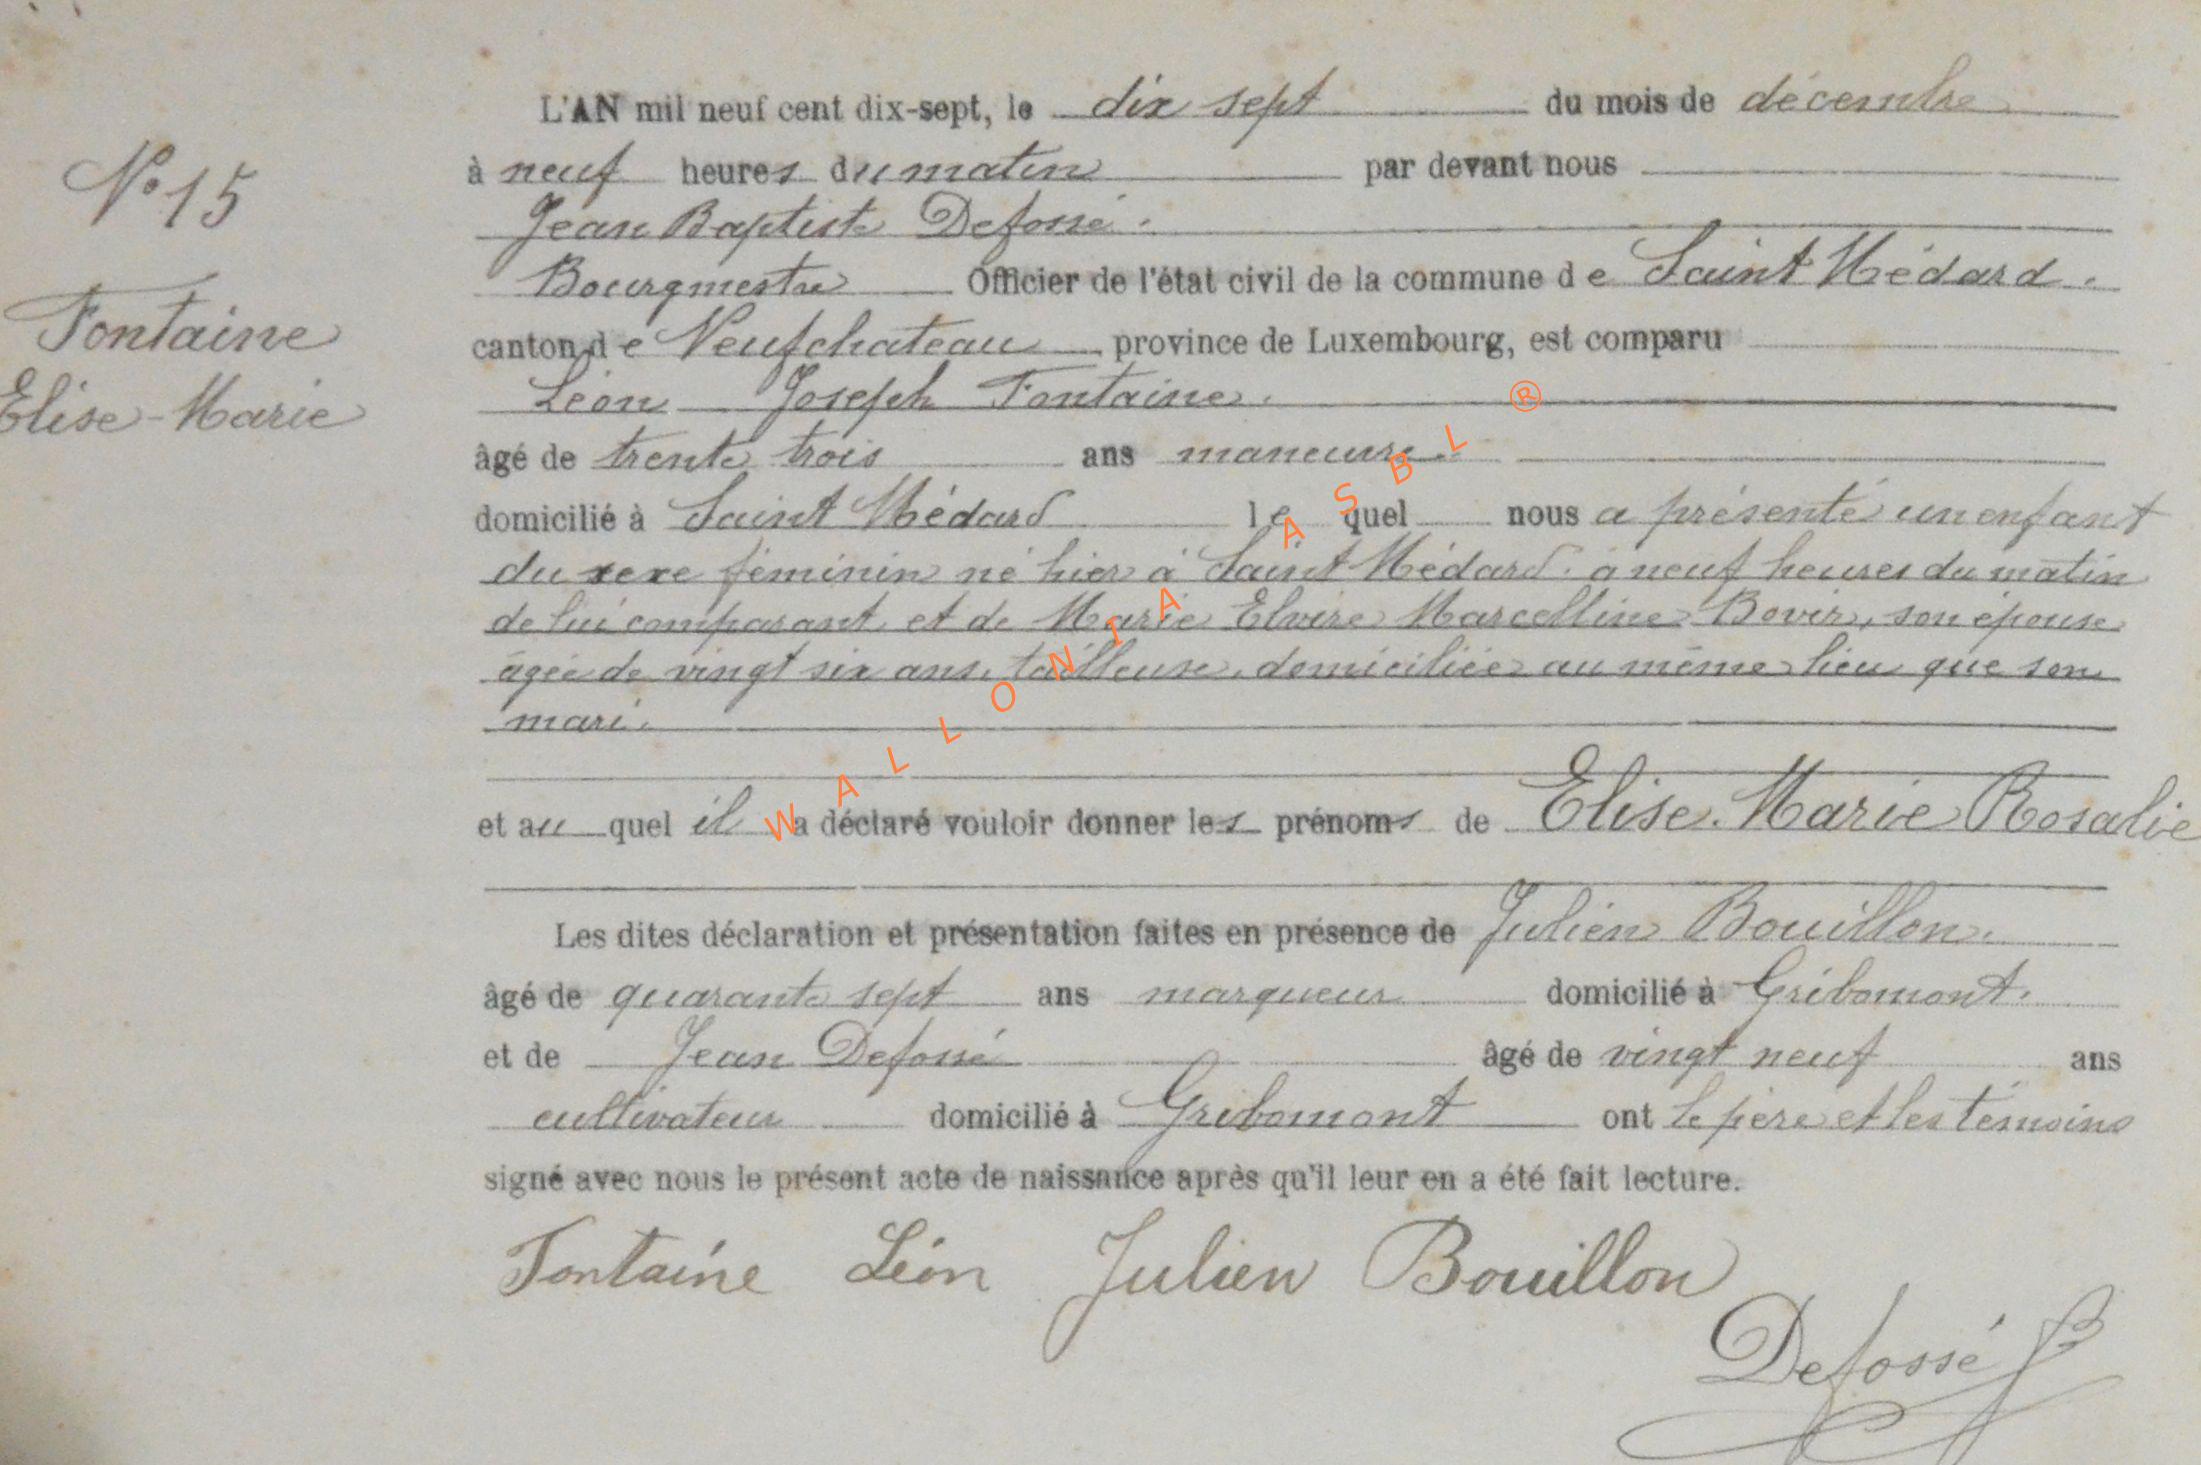 L'AN mil neuf cent dix-sept, le dix sept du mois de décembre
N° 15
à neuf heures du matin par devant nous
Jean Baptiste Defossé.
Bourgmestre Officier de l'état civil de la commune de Saint Médard.
Fontaine
canton de Neufchateau province de Luxembourg, est comparu
Elise-Marie
Léon Joseph Fontaine.
âgé de trente trois ans maneuvre.
domicilié à Saint Médard lequel nous a présenté un enfant
du sexe féminin né hier à Saint Médard. à neuf heures du matin
de lui comparant, et de Marie Elvire Marcelline Bovir, son épouse
âgée de vingt six ans, tailleuse, domiciliée au même lieu que son
mari.
et au quel il a déclaré vouloir donner les prénoms de Elise. Marie Rosalie
Les dites déclaration et présentation faites en présence de Julien Bouillon.
âgé de quarante sept ans marqueur domicilié à Gribomont.
et de Jean Defossé âgé de vingt neuf ans
cultivateur domicilié à Gribomont ont le père et les témoins
signé avec nous le présent acte de naissance après qu'il leur en a été fait lecture.
Fontaine Léon Julien Bouillon
Defossé JB
WALLONIA ASBL ®